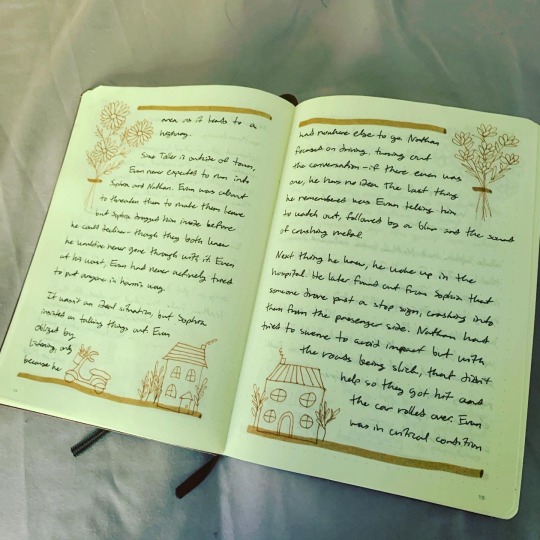 area as it leads to a
highway.
Since Tyler is outside of town,
Evan never expected to run into
Sophia and Nathan. Evan was about
to threaten them to make them leave
but Sophia dragged him inside before
he could bother—though they both knew
he wouldn't have gone through with it. Even
at his worst, Evan had never actively tried
to put anyone in harm's way.
It wasn't an ideal situation, but Sophia
insisted on talking things out. Evan
obliged by
listening, only
because he
had nowhere else to go. Nathan
focused on driving, tuning out
the conversation—if there even was
one, he has no idea. The last thing
he remembered was Evan telling him
to watch out, followed by a blur and the sound
of crushing metal.
Next thing he knew, he woke up in the
hospital. He later found out from Sophia that
someone drove past a stop sign, crashing into
them from the passenger side. Nathan had
tried to swerve to avoid impact but with
the roads being slick, that didn't
help so they got hit and
the car rolled over. Evan
was in critical condition